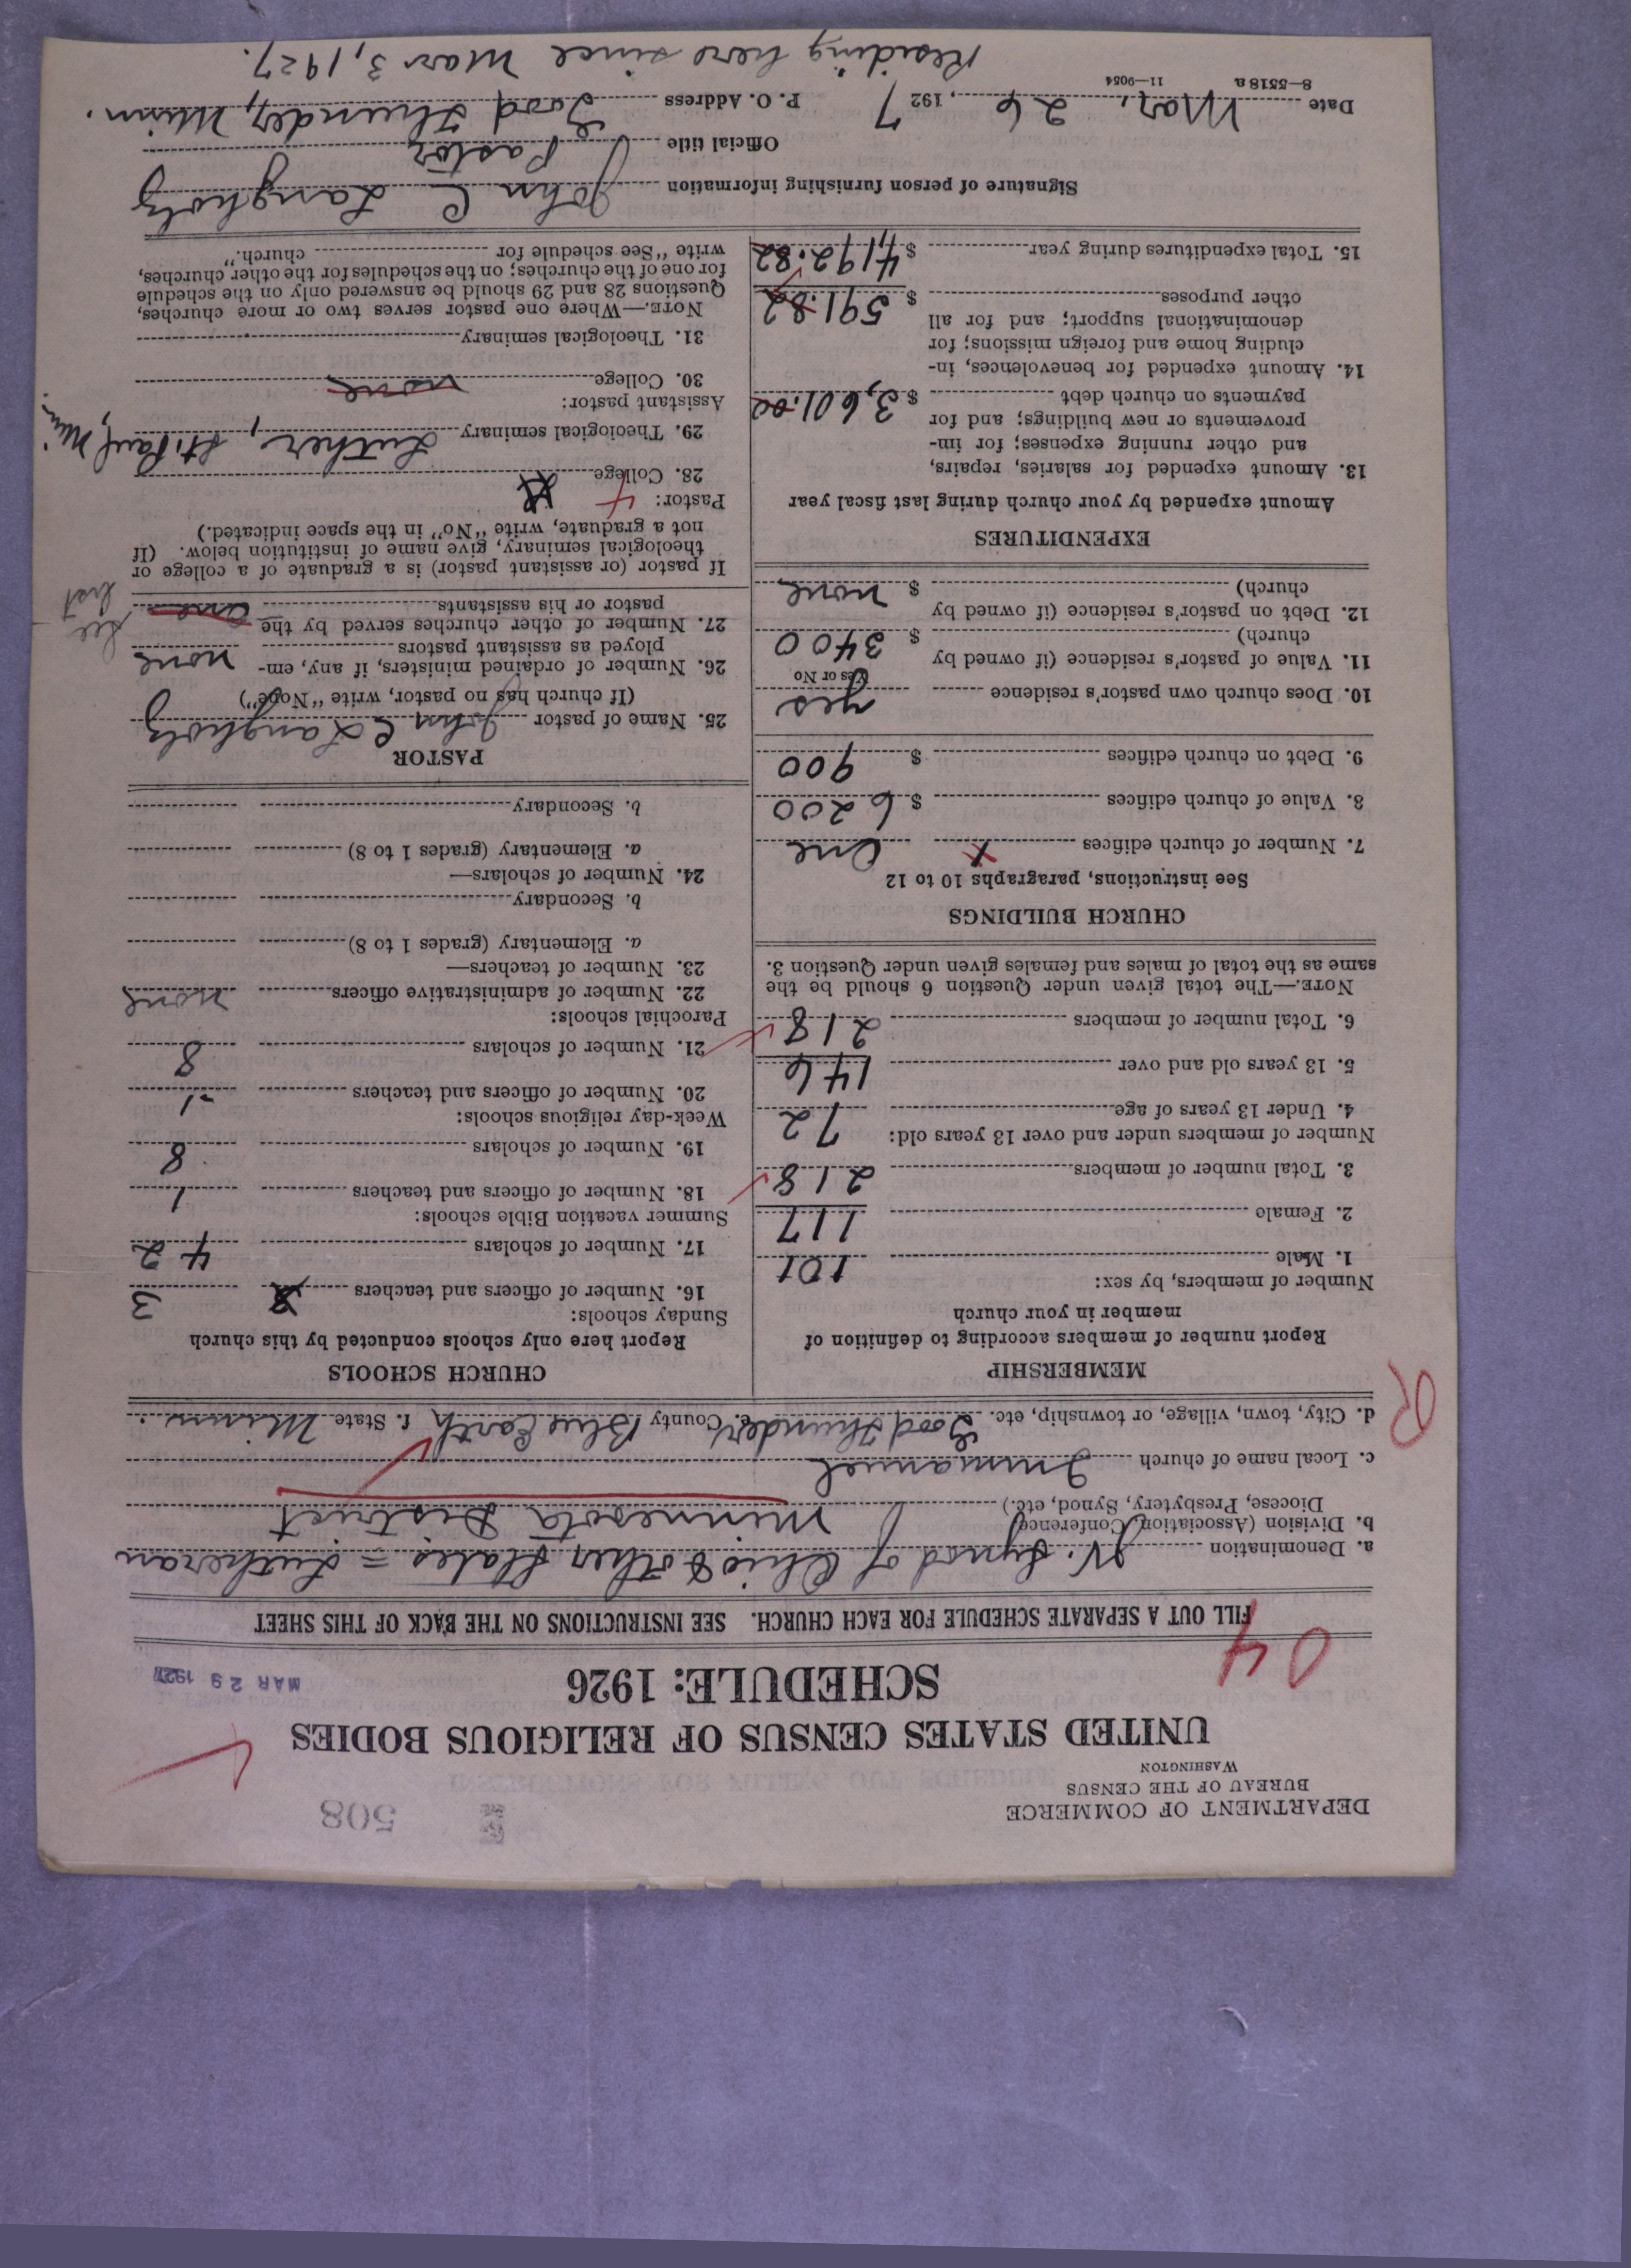 508
DEPARTMENT OF COMMERCE
BUREAU OF THE CENSUS
WASHINGTON
UNITED STATES CENSUS OF RELIGIOUS BODIES
SCHEDULE: 1926
MAR 29 1927
04
FILL OUT A SEPARATE SCHEDULE FOR EACH CHURCH. SEE INSTRUCTIONS ON THE BACK OF THIS SHEET
a. Denomination Synod of Ohio & other States = Lutheran
b. Division (Association, Conference, Diocese, Presbytery, Synod, etc.) Minnesota District
c. Local name of church Immanuel
d. City, town, village, or township, etc. Good Thunder e. County Blue Earth f. State Minn.
R
MEMBERSHIP
Report number of members according to definition of
member in your church
Number of members, by sex:
1. Male 101
2. Female 117
3. Total number of members 218
Number of members under and over 13 years old:
4. Under 13 years of age 72
5. 13 years old and over 146
6. Total number of members 218
NOTE.—The total given under Question 6 should be the
same as the total of males and females given under Question 3.
CHURCH BUILDINGS
See instructions, paragraphs 10 to 12
7. Number of church edifices One
8. Value of church edifices $ 6200
9. Debt on church edifices $ 900
10. Does church own pastor's residence yes
Yes or No
11. Value of pastor's residence (if owned by
church) $ 3400
12. Debt on pastor's residence (if owned by
church) $ none
EXPENDITURES
Amount expended by your church during last fiscal year
13. Amount expended for salaries, repairs,
and other running expenses; for im-
provements or new buildings; and for
payments on church debt $ 3,601.00
14. Amount expended for benevolences, in-
cluding home and foreign missions; for
denominational support; and for all
other purposes $ 591.82
15. Total expenditures during year $ 4,192.82
CHURCH SCHOOLS
Report here only schools conducted by this church
Sunday schools:
16. Number of officers and teachers 3
17. Number of scholars 42
Summer vacation Bible schools:
18. Number of officers and teachers 1
19. Number of scholars 8
Week-day religious schools:
20. Number of officers and teachers 1
21. Number of scholars 8
Parochial schools:
22. Number of administrative officers none
23. Number of teachers—
a. Elementary (grades 1 to 8)
b. Secondary
24. Number of scholars—
a. Elementary (grades 1 to 8)
b. Secondary
PASTOR
25. Name of pastor John C Langholz
(If church has no pastor, write "None")
26. Number of ordained ministers, if any, em-
ployed as assistant pastors none
27. Number of other churches served by the
pastor or his assistants one
See list
If pastor (or assistant pastor) is a graduate of a college or
theological seminary, give name of institution below. (If
not a graduate, write "No" in the space indicated.)
Pastor:
28. College
29. Theological seminary Luther, St. Paul, Min.
Assistant pastor:
30. College none
31. Theological seminary
NOTE.—Where one pastor serves two or more churches,
Questions 28 and 29 should be answered only on the schedule
for one of the churches; on the schedules for the other churches,
write "See schedule for church."
Signature of person furnishing information John C Langholz
Official title Pastor
Date Mar. 26, 1927 P. O. Address Good Thunder, Minn.
8—5518 a 11—9054
Residing here since Mar 3, 1927.